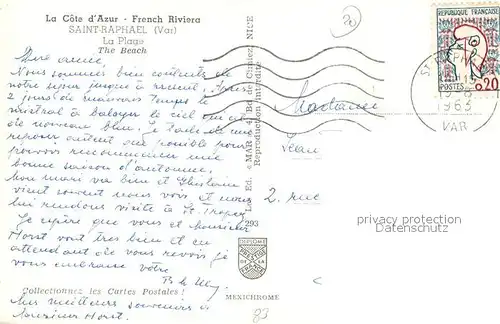 La Côte d'Azur - French Riviera
SAINT-RAPHAEL (Var)
La Plage
The Beach
Chère amie,
Nous sommes bien contents de
notre séjour jusqu'à Nous
2 jours de mauvais temps le
mistral a balayé le ciel
de nouveau bleu. Je de me
reposer autant que possible pour
pouvoir recommencer une
bonne saison d'automne.
Mon mari va bien et Ghislain
vient souvent nous voir et nous
lui rendons visite à St. Tropez
J'espère que vous et Monsieur
Horst vont très bien et en
attendant de vous revoir je
vous embrasse votre
Collectionnez les Cartes Postales !
Mes meilleurs souvenirs à
Monsieur Horst.
Les Ed. "MAR" 4, Bd de Cimiez NICE
Reproduction interdite
293
DIPLOME
PRESTIGE
DE LA
FRANCE
MEXICHROME
Madame
2. rue
20
REPUBLIQUE FRANÇAISE
POSTES 0,20
1963
VAR
privacy protection
Persönlichkeitsschutz